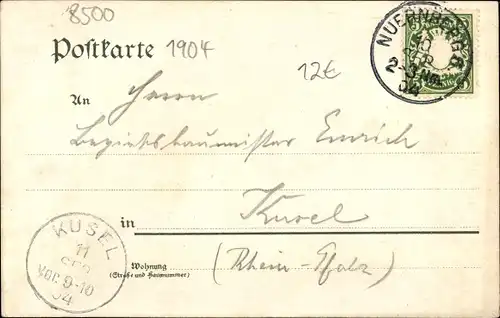 8500
Postkarte 1904
12€
NUERNBERG 8.
2-3 Nm.
04
An Herrn
Bezirksbaumeister Emrich
in Kusel
(Rhein-Pfalz)
Wohnung
(Straße und Hausnummer)
KUSEL
11
SEP
VOR. 9-10
04